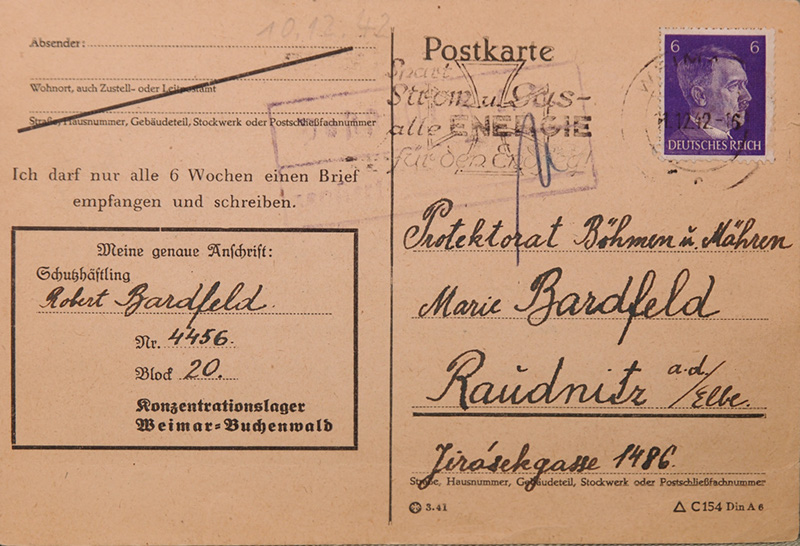 10.12.42
Absender:
Wohnort, auch Zustell- oder Leitpostamt
Straße, Hausnummer, Gebäudeteil, Stockwerk oder Postschließfachnummer
Ich darf nur alle 6 Wochen einen Brief
empfangen und schreiben.
Meine genaue Anschrift:
Schutzhäftling
Robert Bardfeld.
Nr. 4456.
Block 20.
Konzentrationslager
Weimar-Buchenwald
Postkarte
Spart
Strom u. Gas-
alle ENERGIE
für den Endsieg!
6 6
12.42-16
DEUTSCHES REICH
Protektorat Böhmen u. Mähren
Marie Bardfeld
Raudnitz a.d./Elbe.
Jirásekgasse 1486.
Straße, Hausnummer, Gebäudeteil, Stockwerk oder Postschließfachnummer
3.41
C 154 Din A 6